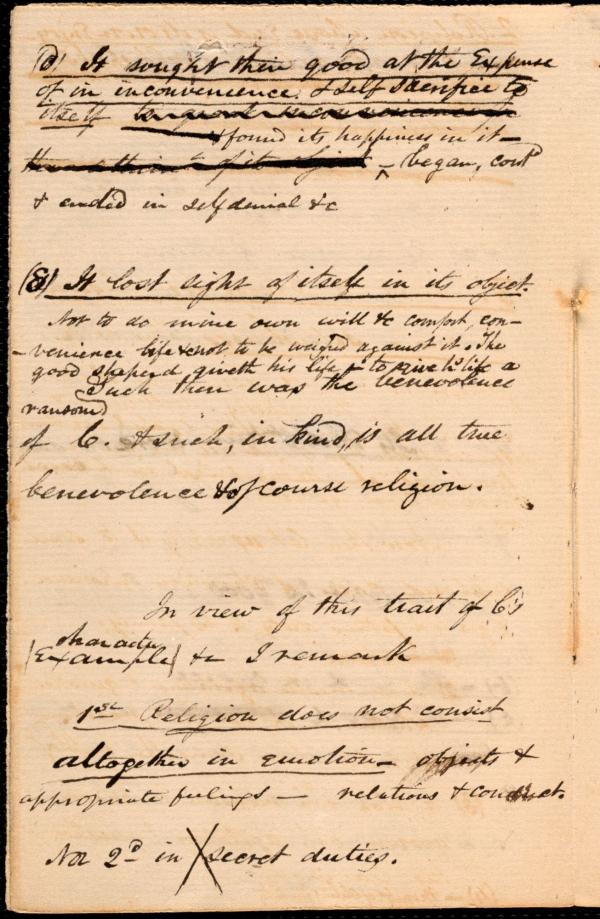 (d) It sought their good at the Expense
of in inconvenience, & self sacrifice to
itself
& found its happiness in it—
— began, cont^d
& ended in self denial &c
(8) It lost sight of itself in its object.
Not to do mine own will &c comfort, con-
-venience life &c not to be weighed against it. The
good sheperd giveth his life, to give his life a
Such then was the benevolence
ransom)
of C. & such, in kind, is all true
benevolence & of course religion.
In view of this trait of C's
character
(Example) &c I remark
1st Religion does not consist
altogether in emotion— objects &
appropriate feelings — relations & conduct.
Nor 2^d in secret duties.